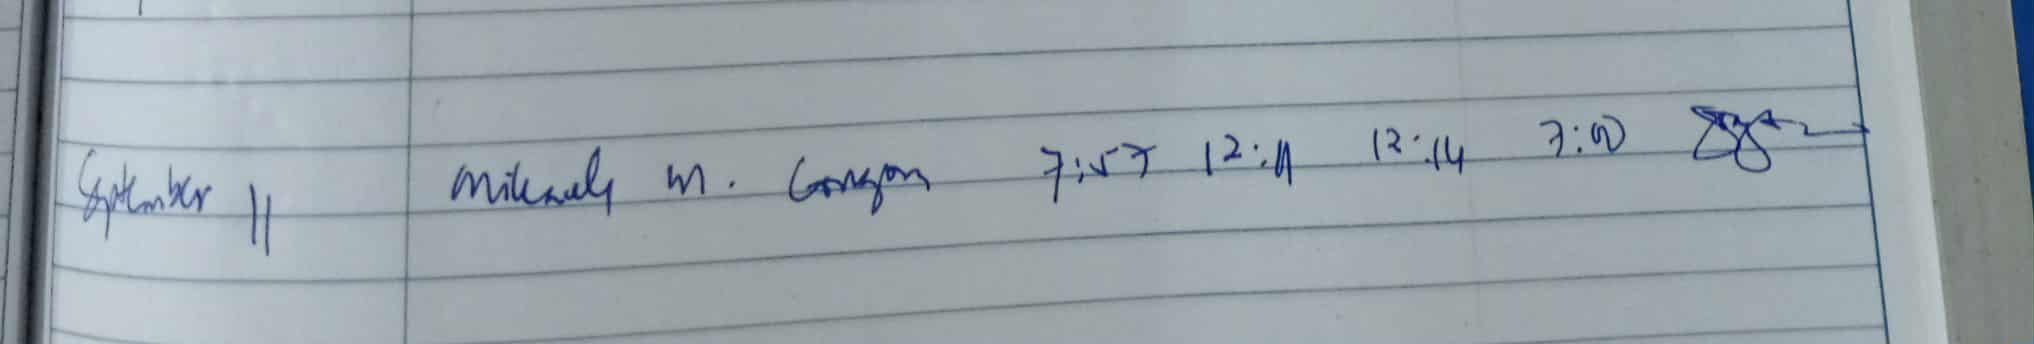 September 11 Mikaela M. Gongon 7:57 12:11 12:14 7:00